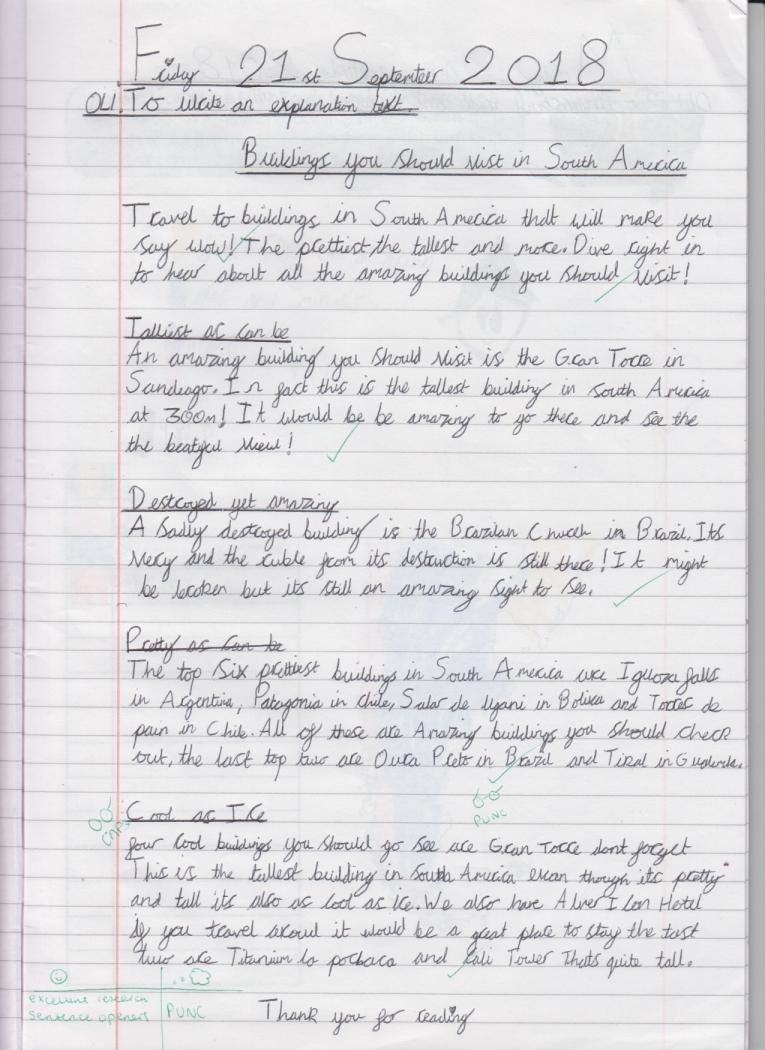 Friday 21st September 2018
OLI. To write an explanation text.
Buildings you should visit in South America
Travel to buildings in South America that will make you
say wow! The prettiest, the tallest and more. Dive right in
to hear about all the amazing buildings you should visit!
Talliest as can be
An amazing building you should visit is the Gran Torre in
Sandeago. In fact this is the tallest building in south America
at 300m! It would be be amazing to go there and see the
the beatyful view!
Destroyed yet amazing
A sadly destroyed building is the Brazilan Church in Brazil. Its
very and the ruble from its destruction is still there! It might
be broken but its still an amazing sight to see.
Pretty as can be
The top six prettiest buildings in South America are Iguoza falls
in Argentina, Patagonia in chile, Salar de Uyani in Bolivia and Torres de
pain in Chile. All of these are Amazing buildings you should check
out, the last top two are Oura Preto in Brazil and Tikal in
PUNC
Cool as Ice
CAPS
four cool buildings you should go see are Gran Torre dont forget
This is the tallest building in South America evan though its pretty
and tall its also as cool as ice. We also have Alver I Lon Hotel
if you travel aroud it would be a great place to stay the last
two are Titanium la portaca and Cali Tower Thats quite tall.
excellent research
sentence openers
PUNC
Thank you for reading